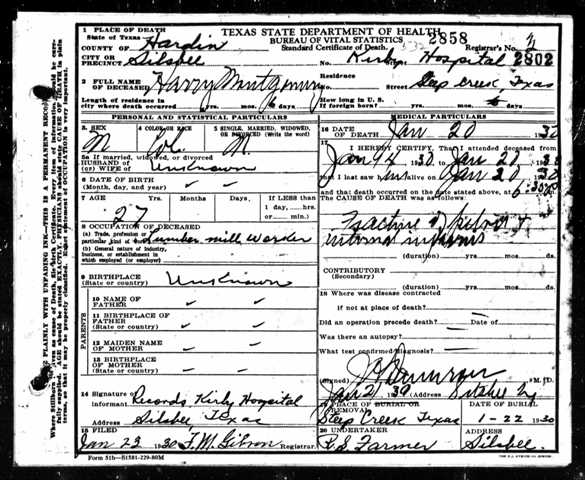 TEXAS STATE DEPARTMENT OF HEALTH
BUREAU OF VITAL STATISTICS
Standard Certificate of Death.
2858
Registrar's No. 2
1 PLACE OF DEATH
State of Texas
COUNTY OF Hardin
CITY OR PRECINCT Silsbee No. Kirby Hospital 2802
2 FULL NAME OF DECEASED Harry Montgomery Residence No. Street Steep Creek, Texas
Length of residence in city where death occurred yrs. mos. days How long in U.S. if foreign born? yrs. mos. days
PERSONAL AND STATISTICAL PARTICULARS
3 SEX M
4 COLOR OR RACE Col.
5 SINGLE, MARRIED, WIDOWED, OR DIVORCED (Write the word) M.
5a If married, widowed, or divorced
HUSBAND OF
(or) WIFE OF Unknown
6 DATE OF BIRTH
(Month, day, and year)
7 AGE Years Months Days If LESS than
1 day, hrs.
or min.
27
8 OCCUPATION OF DECEASED
(a) Trade, profession or particular kind of work Lumber mill Worker
(b) General nature of Industry, business, or establishment in which employed (or employer)
9 BIRTHPLACE
(State or country) Unknown
PARENTS
10 NAME OF FATHER
11 BIRTHPLACE OF FATHER
(State or country)
12 MAIDEN NAME OF MOTHER
13 BIRTHPLACE OF MOTHER
(State or country)
14 Signature Records Kirby Hospital
informant
Address Silsbee Texas
15 FILED
Jan 23 1930 F. M. Gibson Registrar
Form 51b-S1581-229-80M
MEDICAL PARTICULARS
16 DATE OF DEATH Jan 20 30
17 I HEREBY CERTIFY, That I attended deceased from
Jan 1930 to Jan 20 30
that I last saw him alive on Jan 20 30
and that death occurred on the date stated above, at
The CAUSE OF DEATH was as follows:
Fracture of pelvis &
internal injuries
(duration) yrs. mos. ds.
CONTRIBUTORY
(Secondary) (duration) yrs. mos. ds.
18 Where was disease contracted
if not at place of death?
Did an operation precede death? Date of
Was there an autopsy?
What test confirmed diagnosis?
(Signed) M.D.
Jan 21 30 (Address)
19 PLACE OF BURIAL OR REMOVAL
Steep Creek Texas
DATE OF BURIAL
1-22 1930
20 UNDERTAKER
R. S. Farmer
ADDRESS
Silsbee.